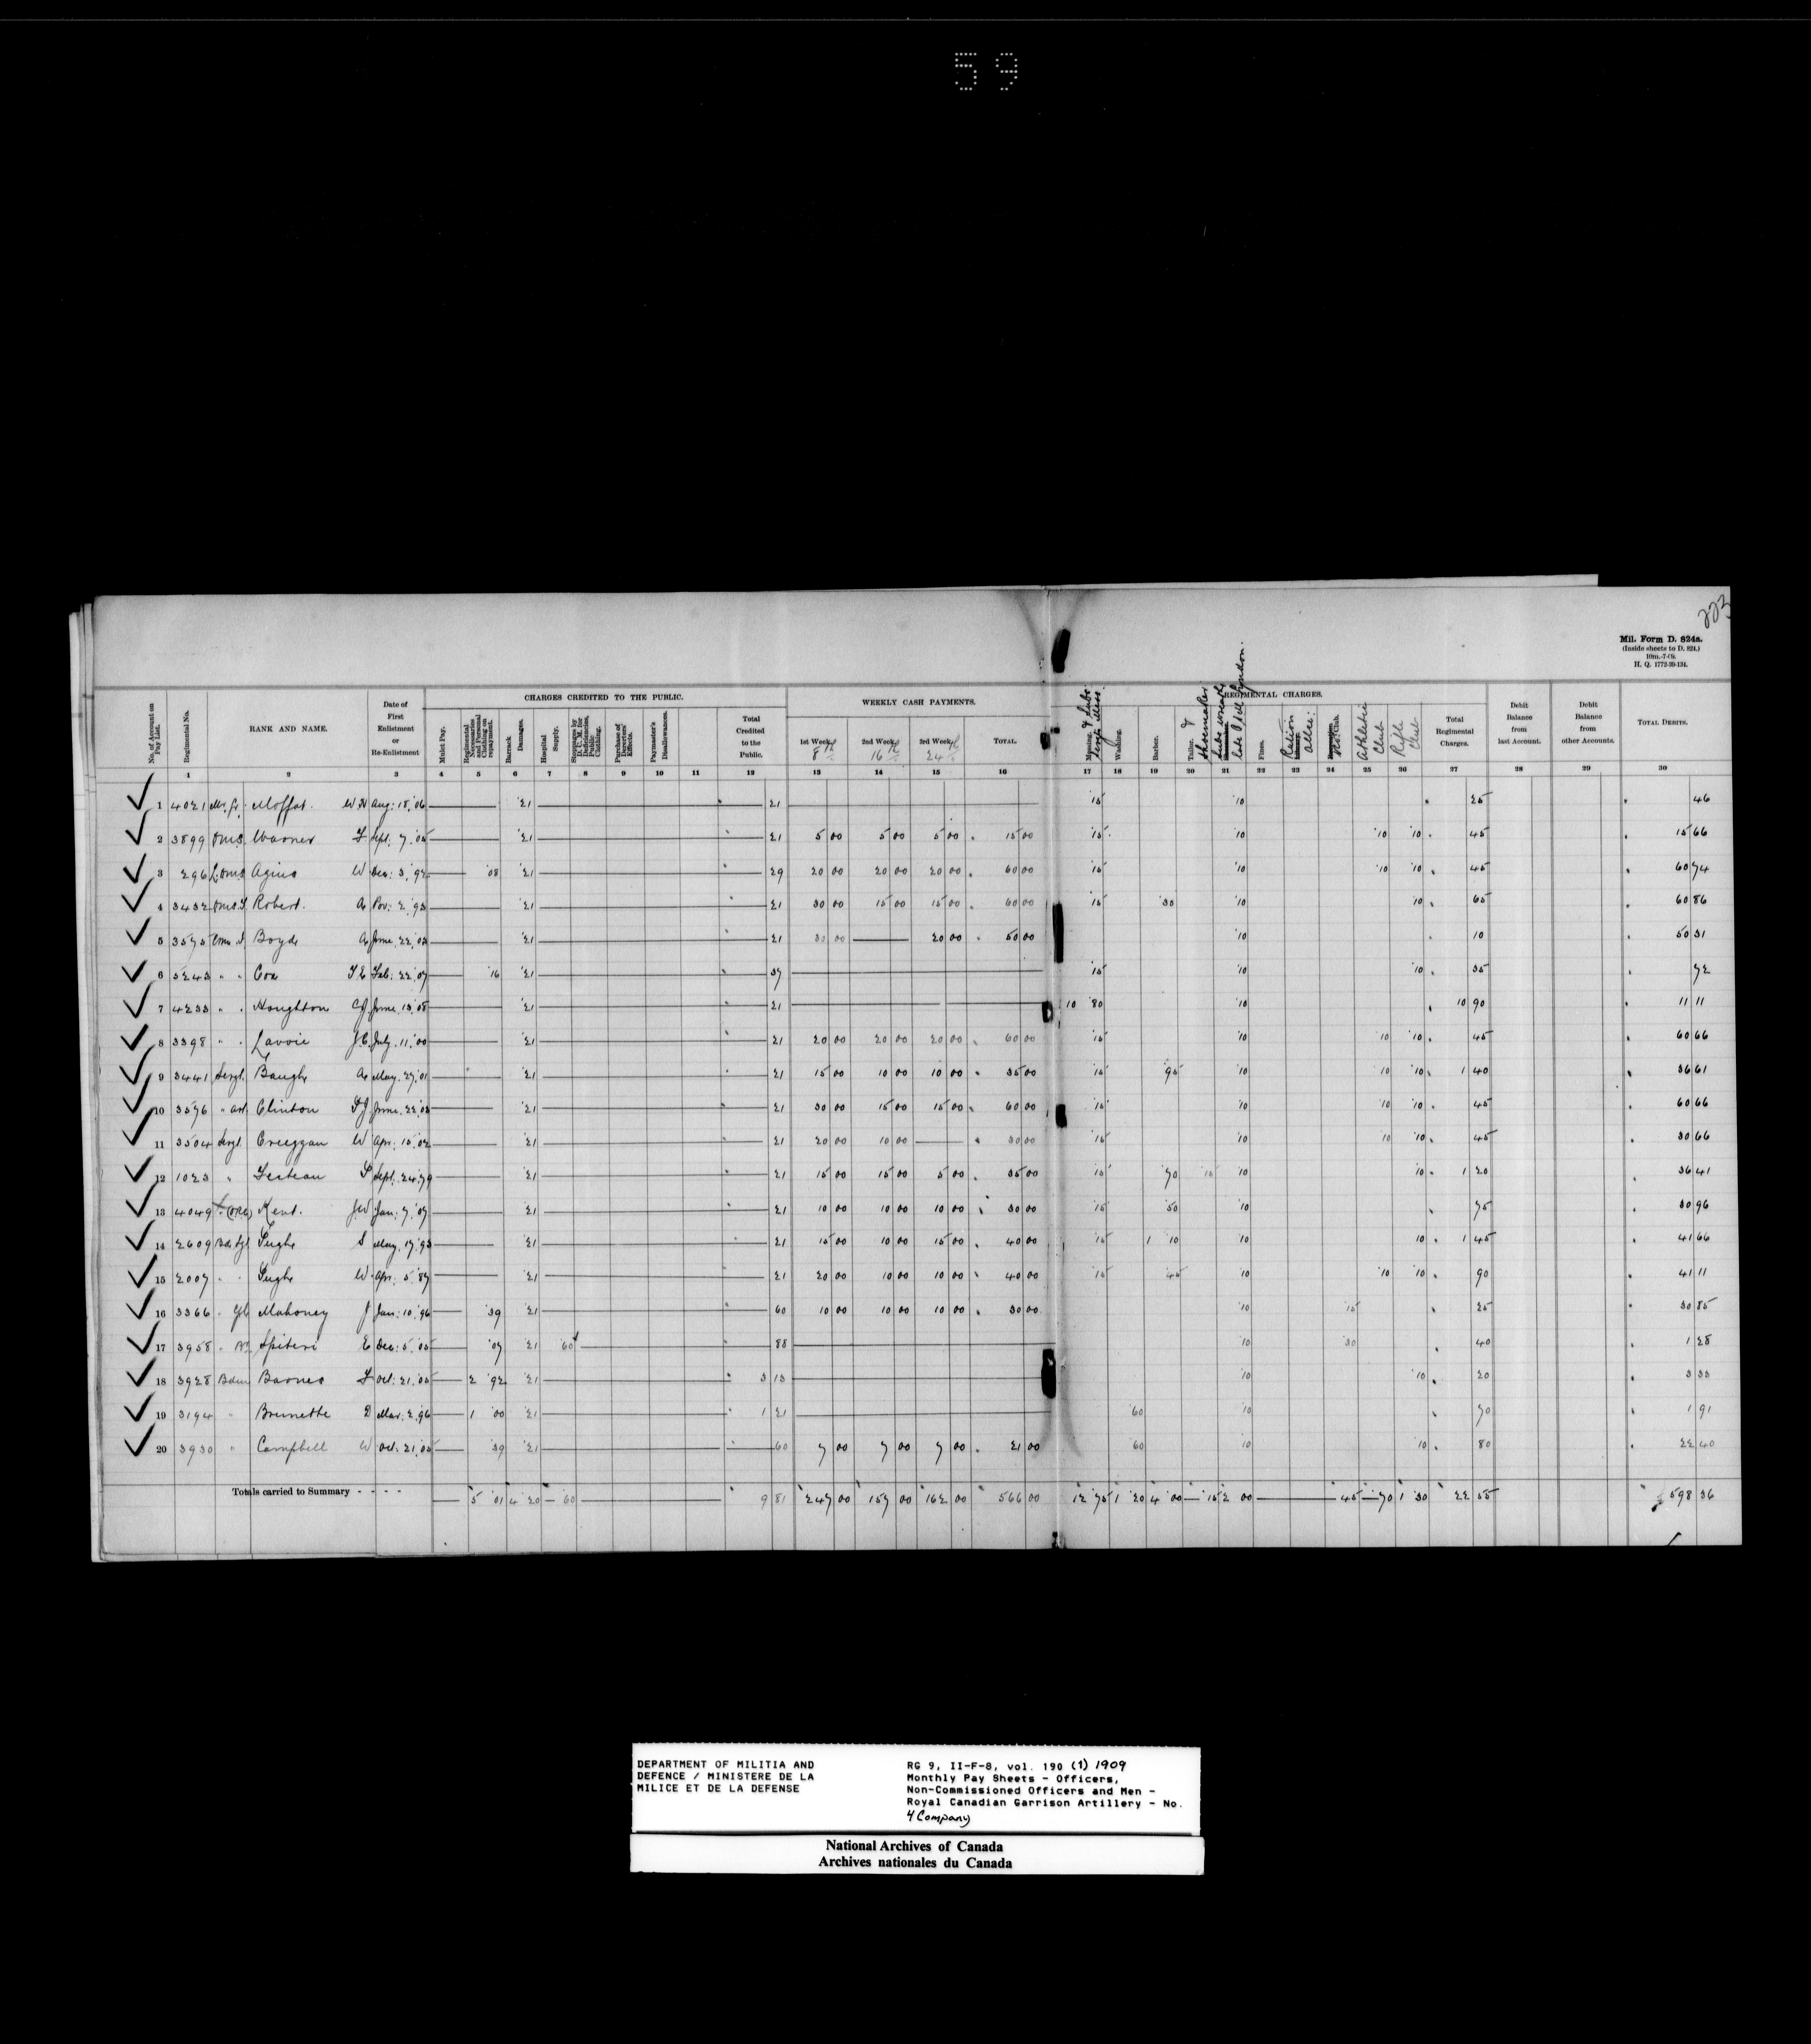 59
223
Mil. Form D. 824a.
(Inside sheets to D. 824.)
H. Q. 1772-39-134.
CHARGES CREDITED TO THE PUBLIC. WEEKLY CASH PAYMENTS. REGIMENTAL CHARGES.
No. of Account on Pay List. Regimental No. RANK AND NAME. Date of First Enlistment or Re-Enlistment Mulct Pay. Regimental Necessaries and Personal Clothing on repayment. Barrack Damages. Hospital Supply. Stoppages by D. C. M. for Deficiencies, Public Clothing. Purchase of Deserters' Effects. Paymaster's Disallowances. Total Credited to the Public. 1st Week 8th 2nd Week 16th 3rd Week 24th TOTAL. Messing & Subs Sergts Mess. Washing. Barber. Tailor & Shoemaker Subs wreath late Lyndon. Fines. Ration allce: Club. Athletic Club Rifle Club Total Regimental Charges. Debit Balance from last Account. Debit Balance from other Accounts. TOTAL DEBITS.
1 2 3 4 5 6 7 8 9 10 11 12 13 14 15 16 17 18 19 20 21 22 23 24 25 26 27 28 29 30
1 4021 Mr. Gr. Moffat. W H Aug: 18, '06 21 21 15 10 25 46
2 3899 Warner F Sept. 7. '05 21 21 5 00 5 00 5 00 15 00 15 10 10 10 45 15 66
3 296 Agius W Dec: 3, '92 08 21 29 20 00 20 00 20 00 60 00 15 10 10 10 45 60 74
4 3432 Robert. A Nov: 2, '93 21 21 30 00 15 00 15 00 60 00 15 30 10 10 65 60 86
5 3575 Boyde A June. 22, '02 21 21 30 00 20 00 50 00 10 10 50 31
6 5243 " " Cox F E Feb: 22, '07 16 21 37 15 10 10 35 72
7 4233 " " Houghton C J June. 13, '08 21 21 10 80 10 10 90 11 11
8 3398 " " Lavoie J E July. 11, '00 21 21 20 00 20 00 20 00 60 00 15 10 10 10 45 60 66
9 3441 Sergt. Baugh A May. 27, '01 21 21 15 00 10 00 10 00 35 00 15 95 10 10 10 1 40 36 61
10 3576 " Clinton P J June. 22, '02 21 21 30 00 15 00 15 00 60 00 15 10 10 10 45 60 66
11 3504 Sergt. Creeggan W Apr: 15, '02 21 21 20 00 10 00 30 00 15 10 10 10 45 30 66
12 1023 " Fecteau P Sept. 24, '79 21 21 15 00 15 00 5 00 35 00 15 70 15 10 10 1 20 36 41
13 4049 Kent. J W Jan: 7, '07 21 21 10 00 10 00 10 00 30 00 15 50 10 75 30 96
14 2609 Pugh S May. 17, '93 21 21 15 00 10 00 15 00 40 00 15 1 10 10 10 1 45 41 66
15 2007 " " Pugh W Apr. 5, '87 21 21 20 00 10 00 10 00 40 00 15 45 10 10 10 90 41 11
16 3366 " Mahoney J Jan: 10, '96 39 21 60 10 00 10 00 10 00 30 00 10 15 25 30 85
17 3958 " Spiteri E Dec: 5, '05 07 21 60 88 10 30 40 1 28
18 3928 Bdm. Barnes F Oct: 21, '05 2 92 21 3 13 10 10 20 3 33
19 3194 " Brunette D Mar: 2, '96 1 00 21 1 21 60 10 70 1 91
20 3930 " Campbell W Oct: 21, '05 39 21 60 7 00 7 00 7 00 21 00 60 10 10 80 22 40
Totals carried to Summary 5 01 4 20 60 9 81 247 00 157 00 162 00 566 00 12 75 1 20 4 00 15 2 00 45 70 1 30 22 55 598 36
DEPARTMENT OF MILITIA AND
DEFENCE / MINISTERE DE LA
MILICE ET DE LA DEFENSE
RG 9, II-F-8, vol. 190 (1) 1909
Monthly Pay Sheets - Officers,
Non-Commissioned Officers and Men -
Royal Canadian Garrison Artillery - No.
4 Company
National Archives of Canada
Archives nationales du Canada